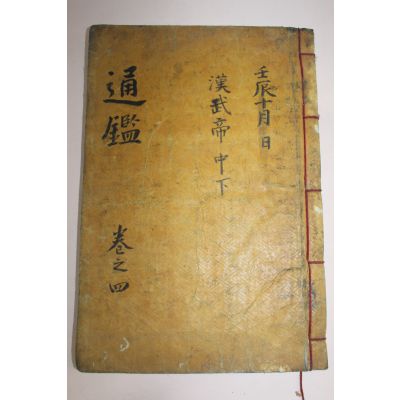 壬辰十月 日
漢武帝 中 下
通鑑
卷之四